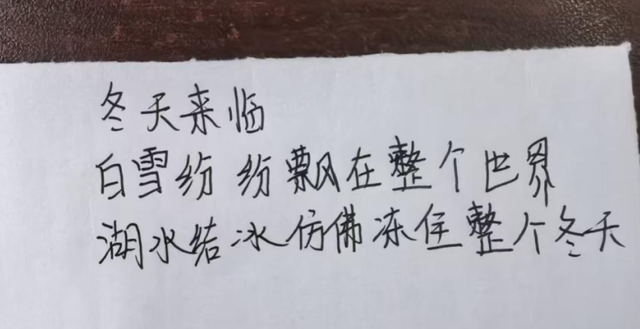 冬天来临
白雪纷纷飘在整个世界
湖水结冰仿佛冻住整个冬天